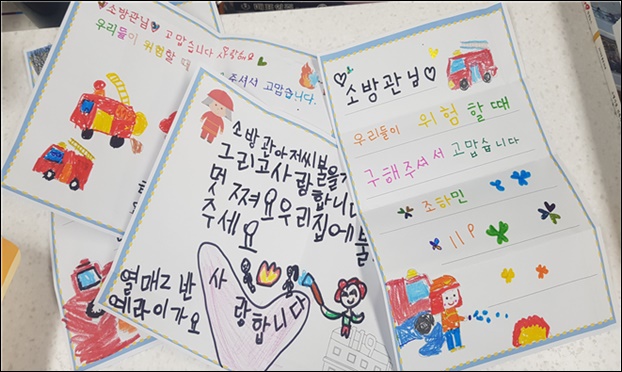 ♡소방관님♡ 고맙습니다 사랑해요
우리들이 위험할 때
주셔서 고맙습니다.
소방관아저씨불을
그리고사람
멋져요우리집에불
주세요
열매2반
예라이가요
사
랑합니다
♡소방관님♡
우리들이 위험 할 때
구해주셔서 고맙습니다
조하민
119